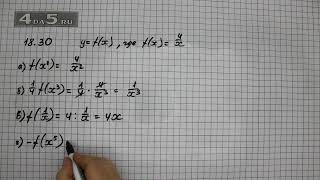 4DA5.RU
18.30 y=f(x), где f(x)=4/x
а) f(x²)=4/x²
б) 1/4 f(x³)=1/4·4/x³=1/x³
в) f(1/x)=4:1/x=4x
г) -f(x⁵)